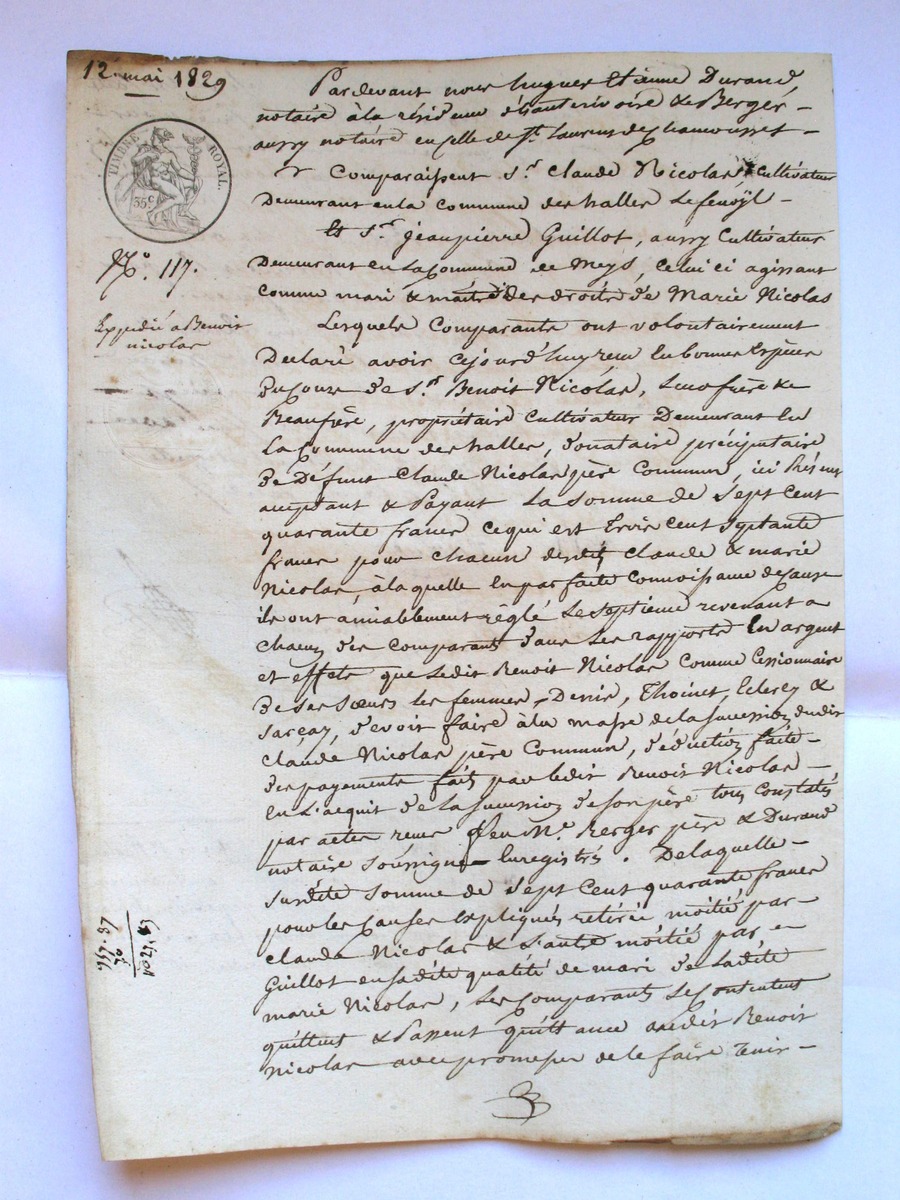 12. mai 1829
TIMBRE ROYAL.
35c
No. 117.
Expedié a Benoit
nicolas
Pardevant nous hugues Etienne Durand
notaire à la résidence de hauterivoire & Berger
aussy notaire en celle de St. Laurent de Chamousset
Comparaissent sr. Claude Nicolas, Cultivateur
Demeurant en la commune des halles Le fenoÿl
Et sr. jeanpierre Guillot, aussy Cultivateur
Demeurant en la Commune de Meys, celui ci agissant
comme mari & maitre des droits de Marie Nicolas
Lesquels Comparants ont volontairement
Declaré avoir cejourd'huy reçu en bonnes Espèces
de sr. Benoit Nicolas, Leur frère &
Beaufrère, propriétaire Cultivateur Demeurant en
La Commune des halles, donataire précipuaire
De Défunt Claude Nicolas père Commun, ici présent
acceptant & Payant La somme de sept Cent
quarante francs ce qui est trois cent septante
francs pour chacun desdits Claude & marie
Nicolas, à laquelle en parfaite connoissance de cause
ils ont amiablement réglé Le septieme revenant a
chacun des Comparants dans Les rapports En argent
et effets que Ledit Benoit Nicolas Comme Cessionnaire
De ses sœurs les femmes Denis, Thoinet, &
Sarçay, devoit faire à la masse de la succession dudit
Claude Nicolas père Commun, déduction faite
des payements faits par ledit Benoit Nicolas
En L'acquit de la succession de son père tous Constatés
par actes reçus Me. Berger père & Durand
notaire soussigné Enregistrés. De laquelle
susdite somme de sept Cent quarante francs
pour les Causes Expliquées retirée moitié par
Claude Nicolas & L'autre moitié par
Guillot en sadite qualité de mari de Ladite
marie Nicolas, Les Comparants Le Contentent
quittent & Passent quittance audit Benoit
Nicolas avec promesse de le faire tenir
957.37
70
1027.37